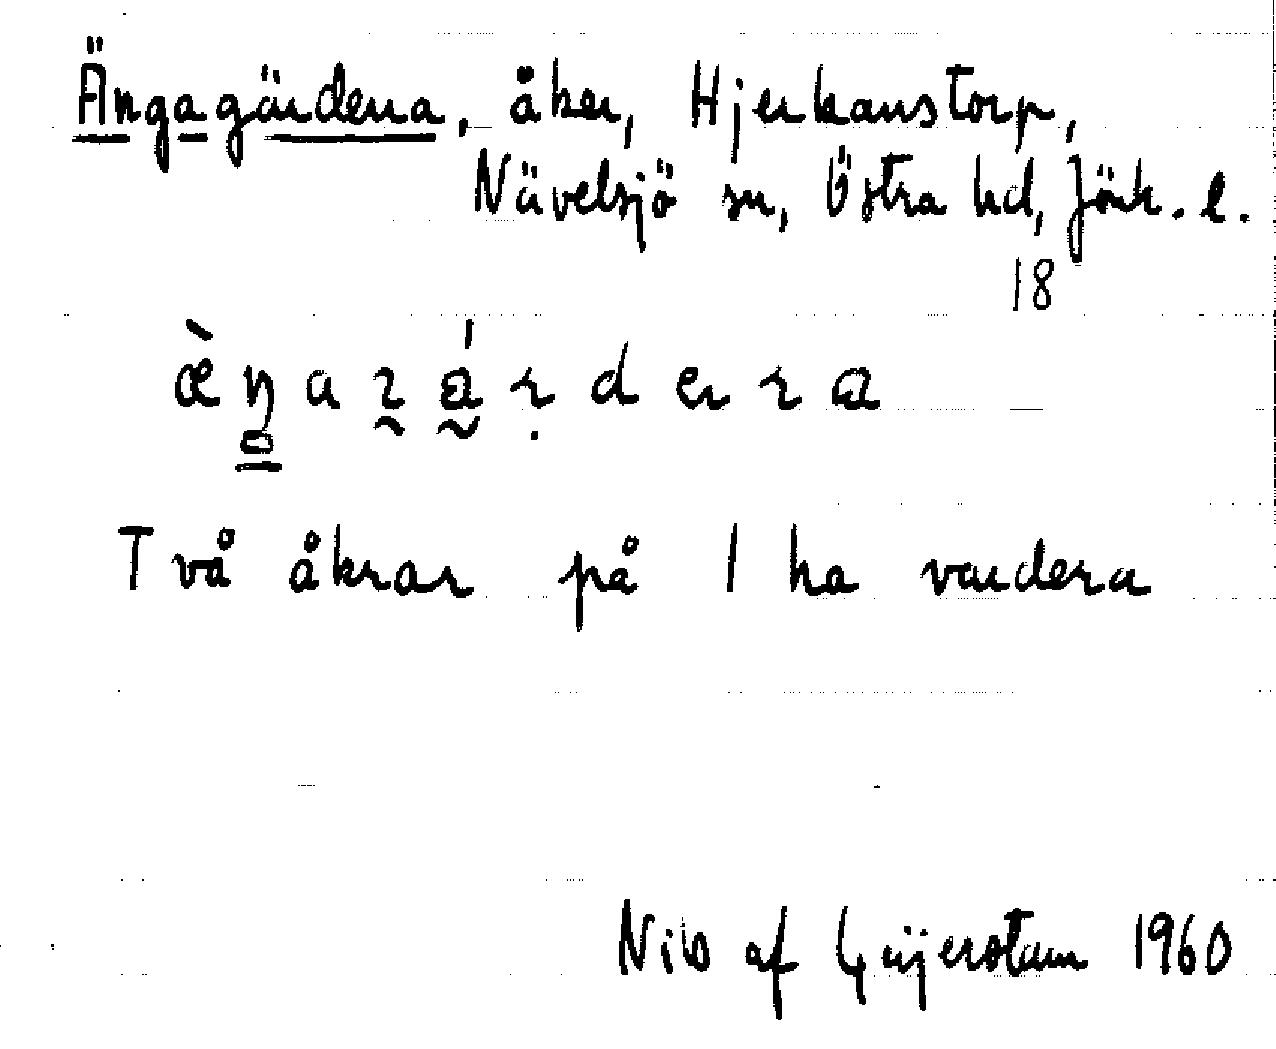 Ängagärdena, åker, Hjerkanstorp,
Nävelsjö sn, Östra hd, Jönk. l.
18
Två åkrar på 1 ha vardera
Nils af Geijerstam 1960